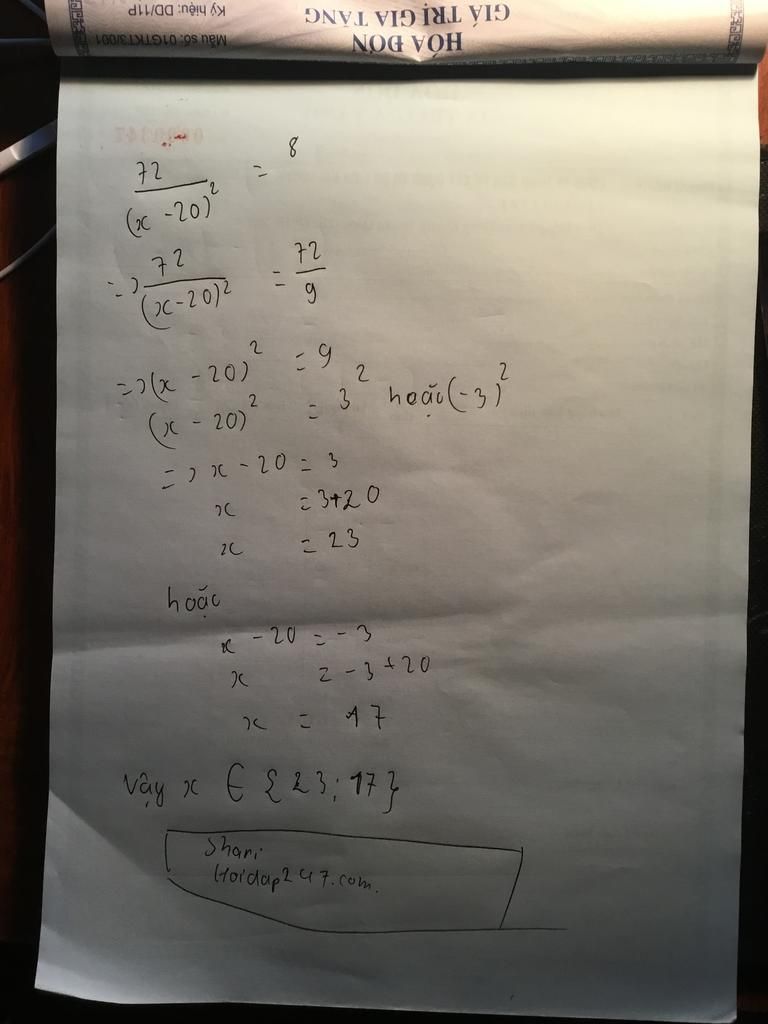 Mẫu số: 01GTKT3/001
Ký hiệu: DD/11P
HÓA ĐƠN
GIÁ TRỊ GIA TĂNG
72/(x - 20)² = 8
=> 72/(x - 20)² = 72/9
=> (x - 20)² = 9
(x - 20)² = 3² hoặc (-3)²
=> x - 20 = 3
x = 3+20
x = 23
hoặc
x - 20 = -3
x = -3 + 20
x = 17
Vậy x ∈ {23; 17}
Shari
Hoidap247.com.